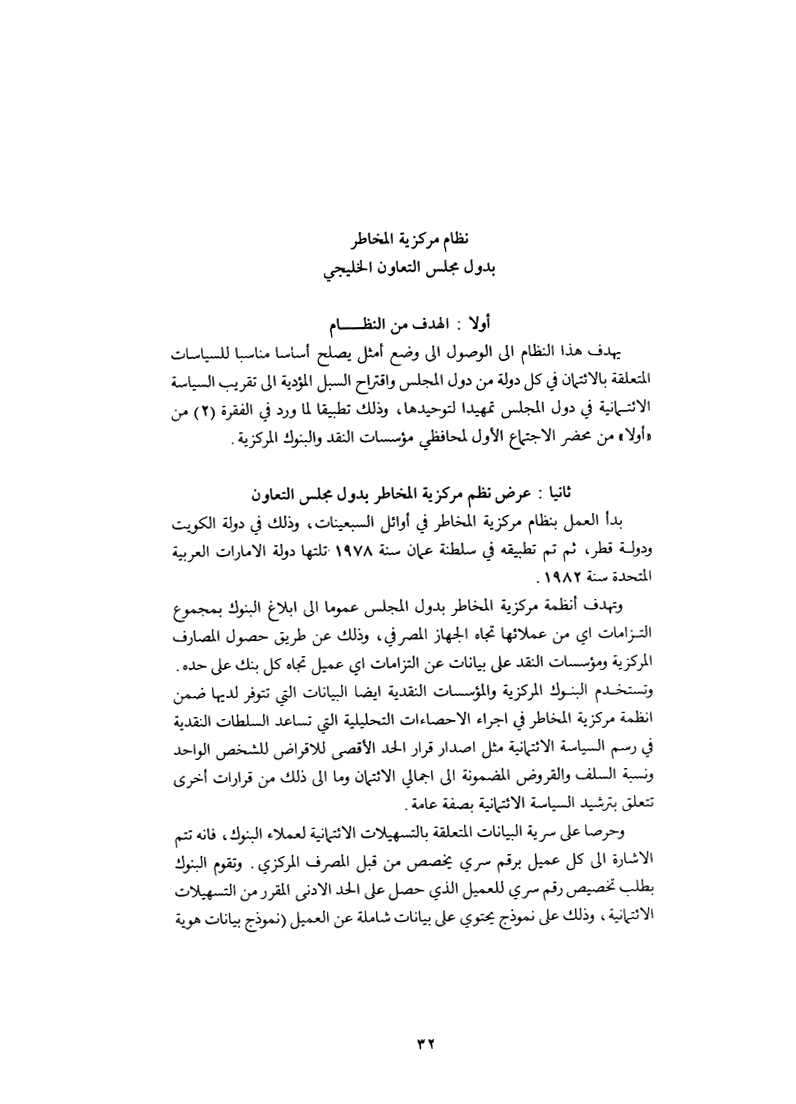 نظام مركزية المخاطر
بدول مجلس التعاون الخليجي
أولا : الهدف من النظـــــام
يهدف هذا النظام الى الوصول الى وضع أمثل يصلح أساسا مناسبا للسياسات
المتعلقة بالائتمان في كل دولة من دول المجلس واقتراح السبل المؤدية الى تقريب السياسة
الائتـمانية في دول المجلس تمهيدا لتوحيدها، وذلك تطبيقا لما ورد في الفقرة (٢) من
«أولا» من محضر الاجتماع الأول لمحافظي مؤسسات النقد والبنوك المركزية .
ثانيا : عرض نظم مركزية المخاطر بدول مجلس التعاون
بدأ العمل بنظام مركزية المخاطر في أوائل السبعينات، وذلك في دولة الكويت
ودولـة قطر، ثم تم تطبيقه في سلطنة عمان سنة ١٩٧٨ تلتها دولة الامارات العربية
المتحدة سنة ١٩٨٢ .
وتهدف أنظمة مركزية المخاطر بدول المجلس عموما الى ابلاغ البنوك بمجموع
التـزامات اي من عملائها تجاه الجهاز المصرفي، وذلك عن طريق حصول المصارف
المركزية ومؤسسات النقد على بيانات عن التزامات اي عميل تجاه كل بنك على حده .
وتستخـدم البنـوك المركزية والمؤسسات النقدية ايضا البيانات التي تتوفر لديها ضمن
انظمة مركزية المخاطر في اجراء الاحصاءات التحليلية التي تساعد السلطات النقدية
في رسم السياسة الائتمانية مثل اصدار قرار الحد الأقصى للاقراض للشخص الواحد
ونسبة السلف والقروض المضمونة الى اجمالي الائتمان وما الى ذلك من قرارات أخرى
تتعلق بترشيد السياسة الائتمانية بصفة عامة .
وحرصا على سرية البيانات المتعلقة بالتسهيلات الائتمانية لعملاء البنوك، فانه تتم
الاشارة الى كل عميل برقم سري يخصص من قبل المصرف المركزي . وتقوم البنوك
بطلب تخصيص رقم سري للعميل الذي حصل على الحد الادنى المقرر من التسهيلات
الائتمانية، وذلك على نموذج يحتوي على بيانات شاملة عن العميل (نموذج بيانات هوية
٣٢